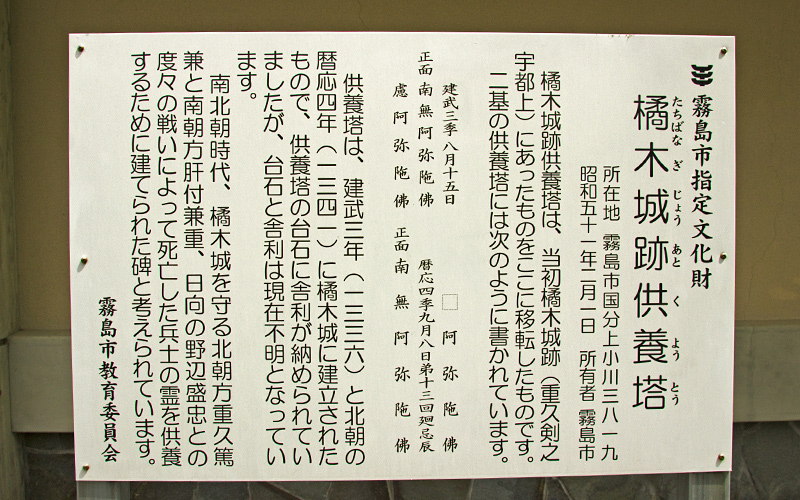 霧島市指定文化財
橘木城跡供養塔
たちばな ぎ じょう あと く よう とう
所在地 霧島市国分上小川三八一九
昭和五十一年二月一日 所有者 霧島市
橘木城跡供養塔は、当初橘木城跡（重久剣之
宇都上）にあったものをここに移転したものです。
二基の供養塔には次のように書かれています。
建武三季八月十五日 □ 阿弥陁佛
正面 南無阿弥陁佛 暦応四季九月八日第十三回廻忌辰
慮阿弥陁佛 正面 南無阿弥陁佛
供養塔は、建武三年（一三三六）と北朝の
暦応四年（一三四一）に橘木城に建立された
もので、供養塔の台石に舎利が納められてい
ましたが、台石と舎利は現在不明となってい
ます。
南北朝時代、橘木城を守る北朝方重久篤
兼と南朝方肝付兼重、日向の野辺盛忠との
度々の戦いによって死亡した兵士の霊を供養
するために建てられた碑と考えられています。
霧島市教育委員会